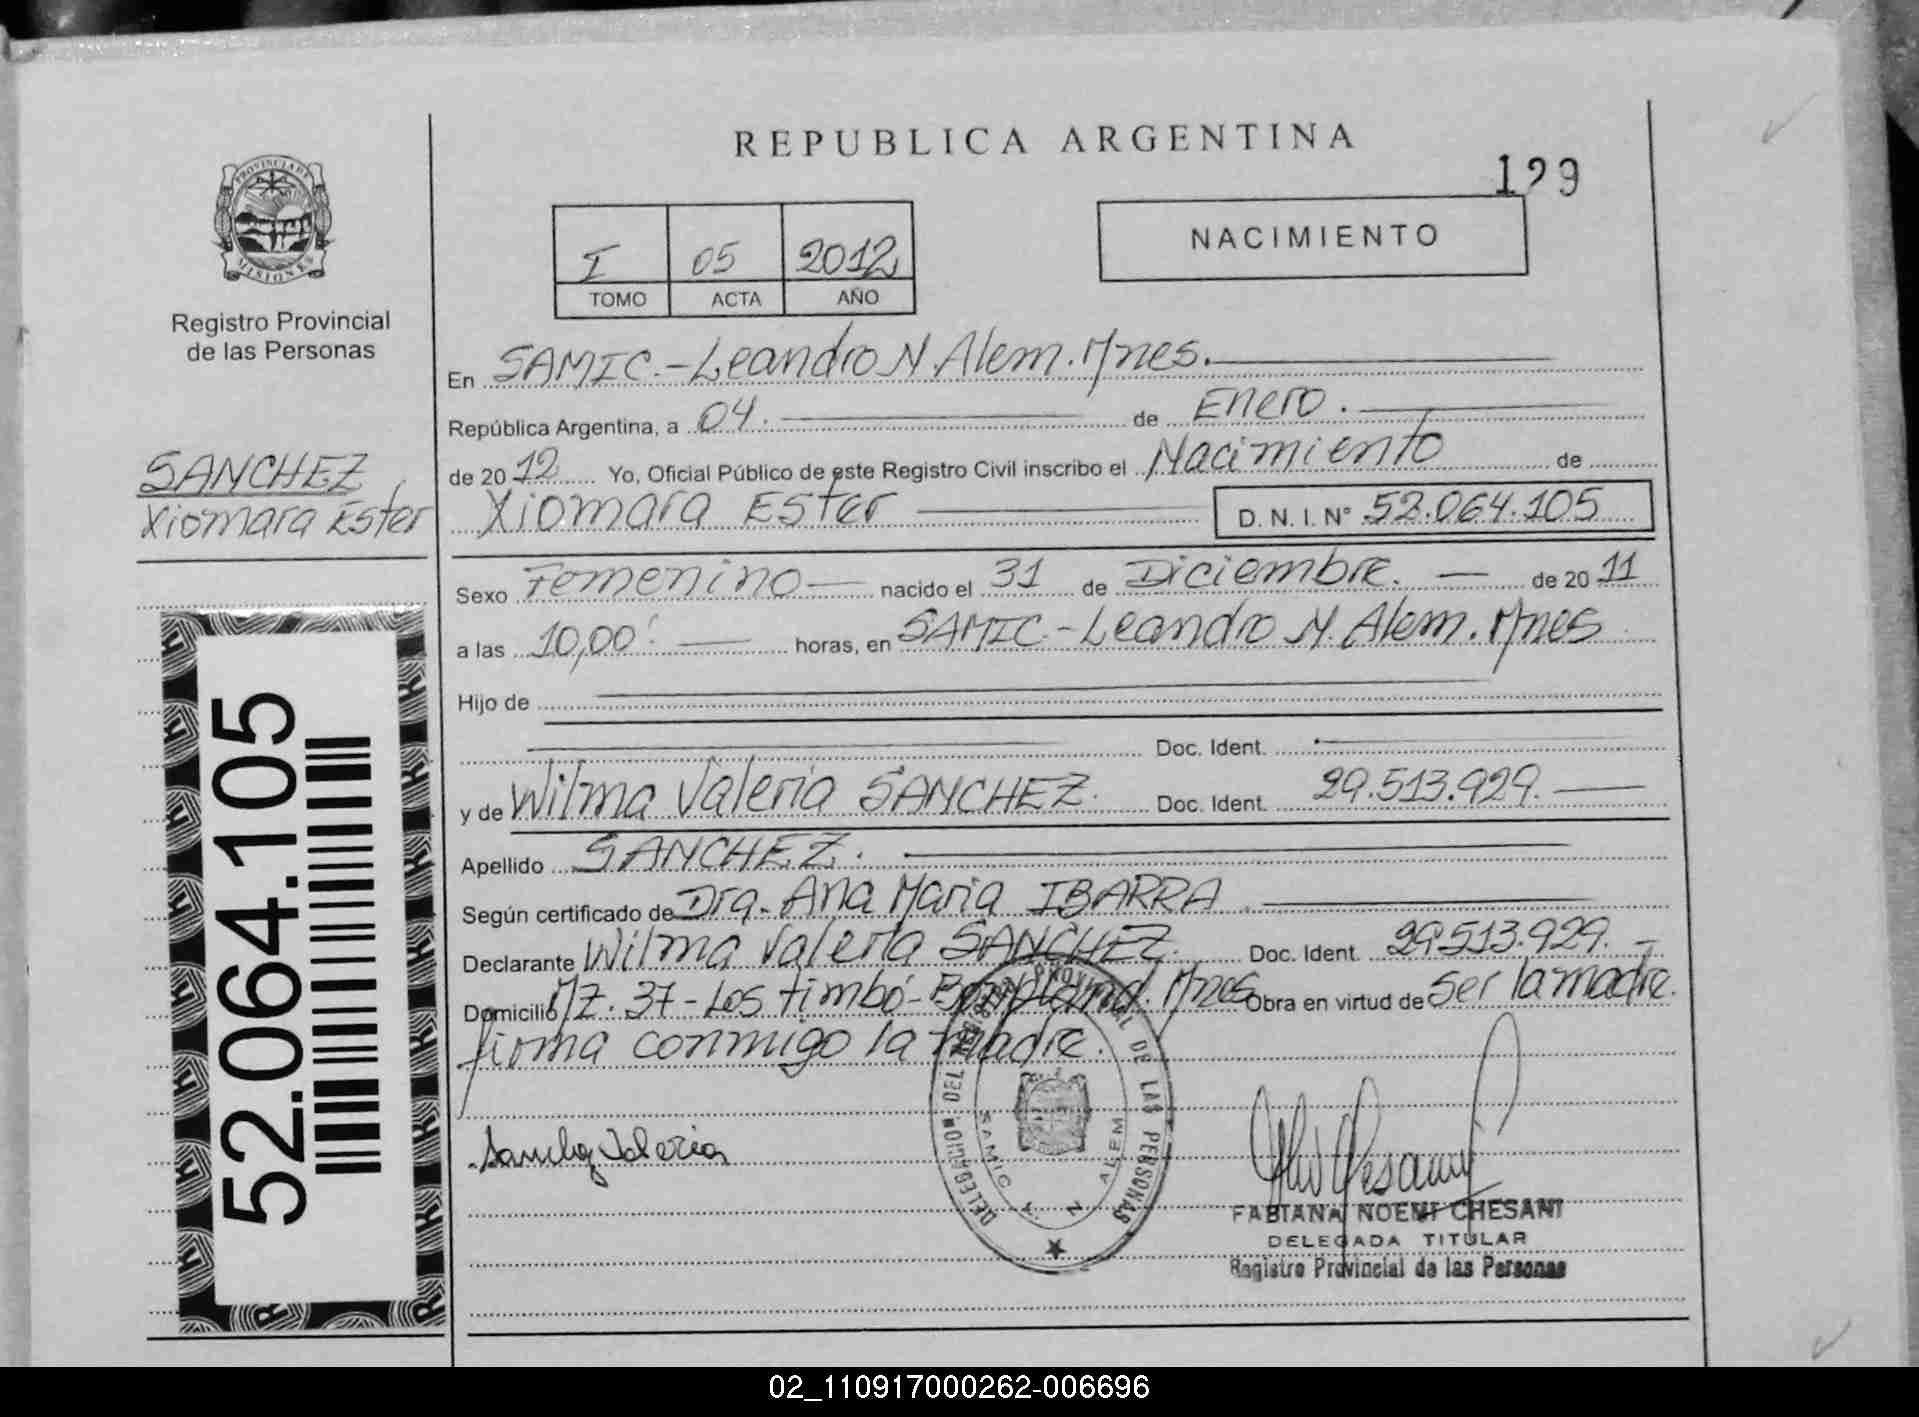 REPUBLICA ARGENTINA
129
PROVINCIA DE
MISIONES
Registro Provincial
de las Personas
I 05 2012
TOMO ACTA AÑO
NACIMIENTO
En SAMIC.-Leandro N. Alem. Mnes.
República Argentina, a 04. de Enero.
de 2012 Yo, Oficial Público de este Registro Civil inscribo el Nacimiento de
SANCHEZ
Xiomara Ester
Xiomara Ester D. N. I. N° 52.064.105
Sexo Femenino nacido el 31 de Diciembre. de 2011
a las 10,00 horas, en SAMIC-Leandro N. Alem. Mnes
Hijo de
Doc. Ident.
y de Wilma Valeria SANCHEZ. Doc. Ident. 29.513.929.
Apellido SANCHEZ.
Según certificado de Dra. Ana Maria IBARRA
Declarante Wilma Valeria SANCHEZ. Doc. Ident. 29.513.929.
Domicilio Mz. 37-Los timbó-Bonpland. Mnes Obra en virtud de ser la madre.
firma conmigo la madre.
52.064.105
Sanchez Valeria
DELEGACION DEL REGISTRO PROVINCIAL DE LAS PERSONAS
SAMIC L. N. ALEM
FABIANA NOEMI CHESANI
DELEGADA TITULAR
Registro Provincial de las Personas
02_110917000262-006696